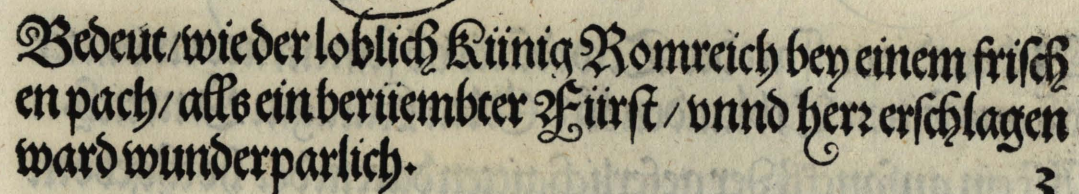 Bedeut/wie der loblich Künig Romreich bey einem frisch
en pach/ alls ein berüembter Fürst/ vnnd herr erschlagen
ward wunderparlich.
3